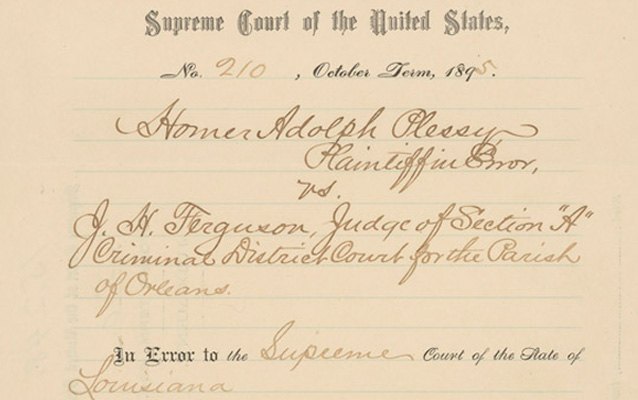 Supreme Court of the United States,
No. 210, October Term, 1895.
Homer Adolph Plessy
Plaintiff in Error,
vs.
J. H. Ferguson, Judge of Section "A"
Criminal District Court for the Parish
of Orleans.
In Error to the Supreme Court of the State of
Louisiana